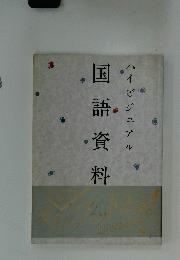 ハイビジュアル
国語資料